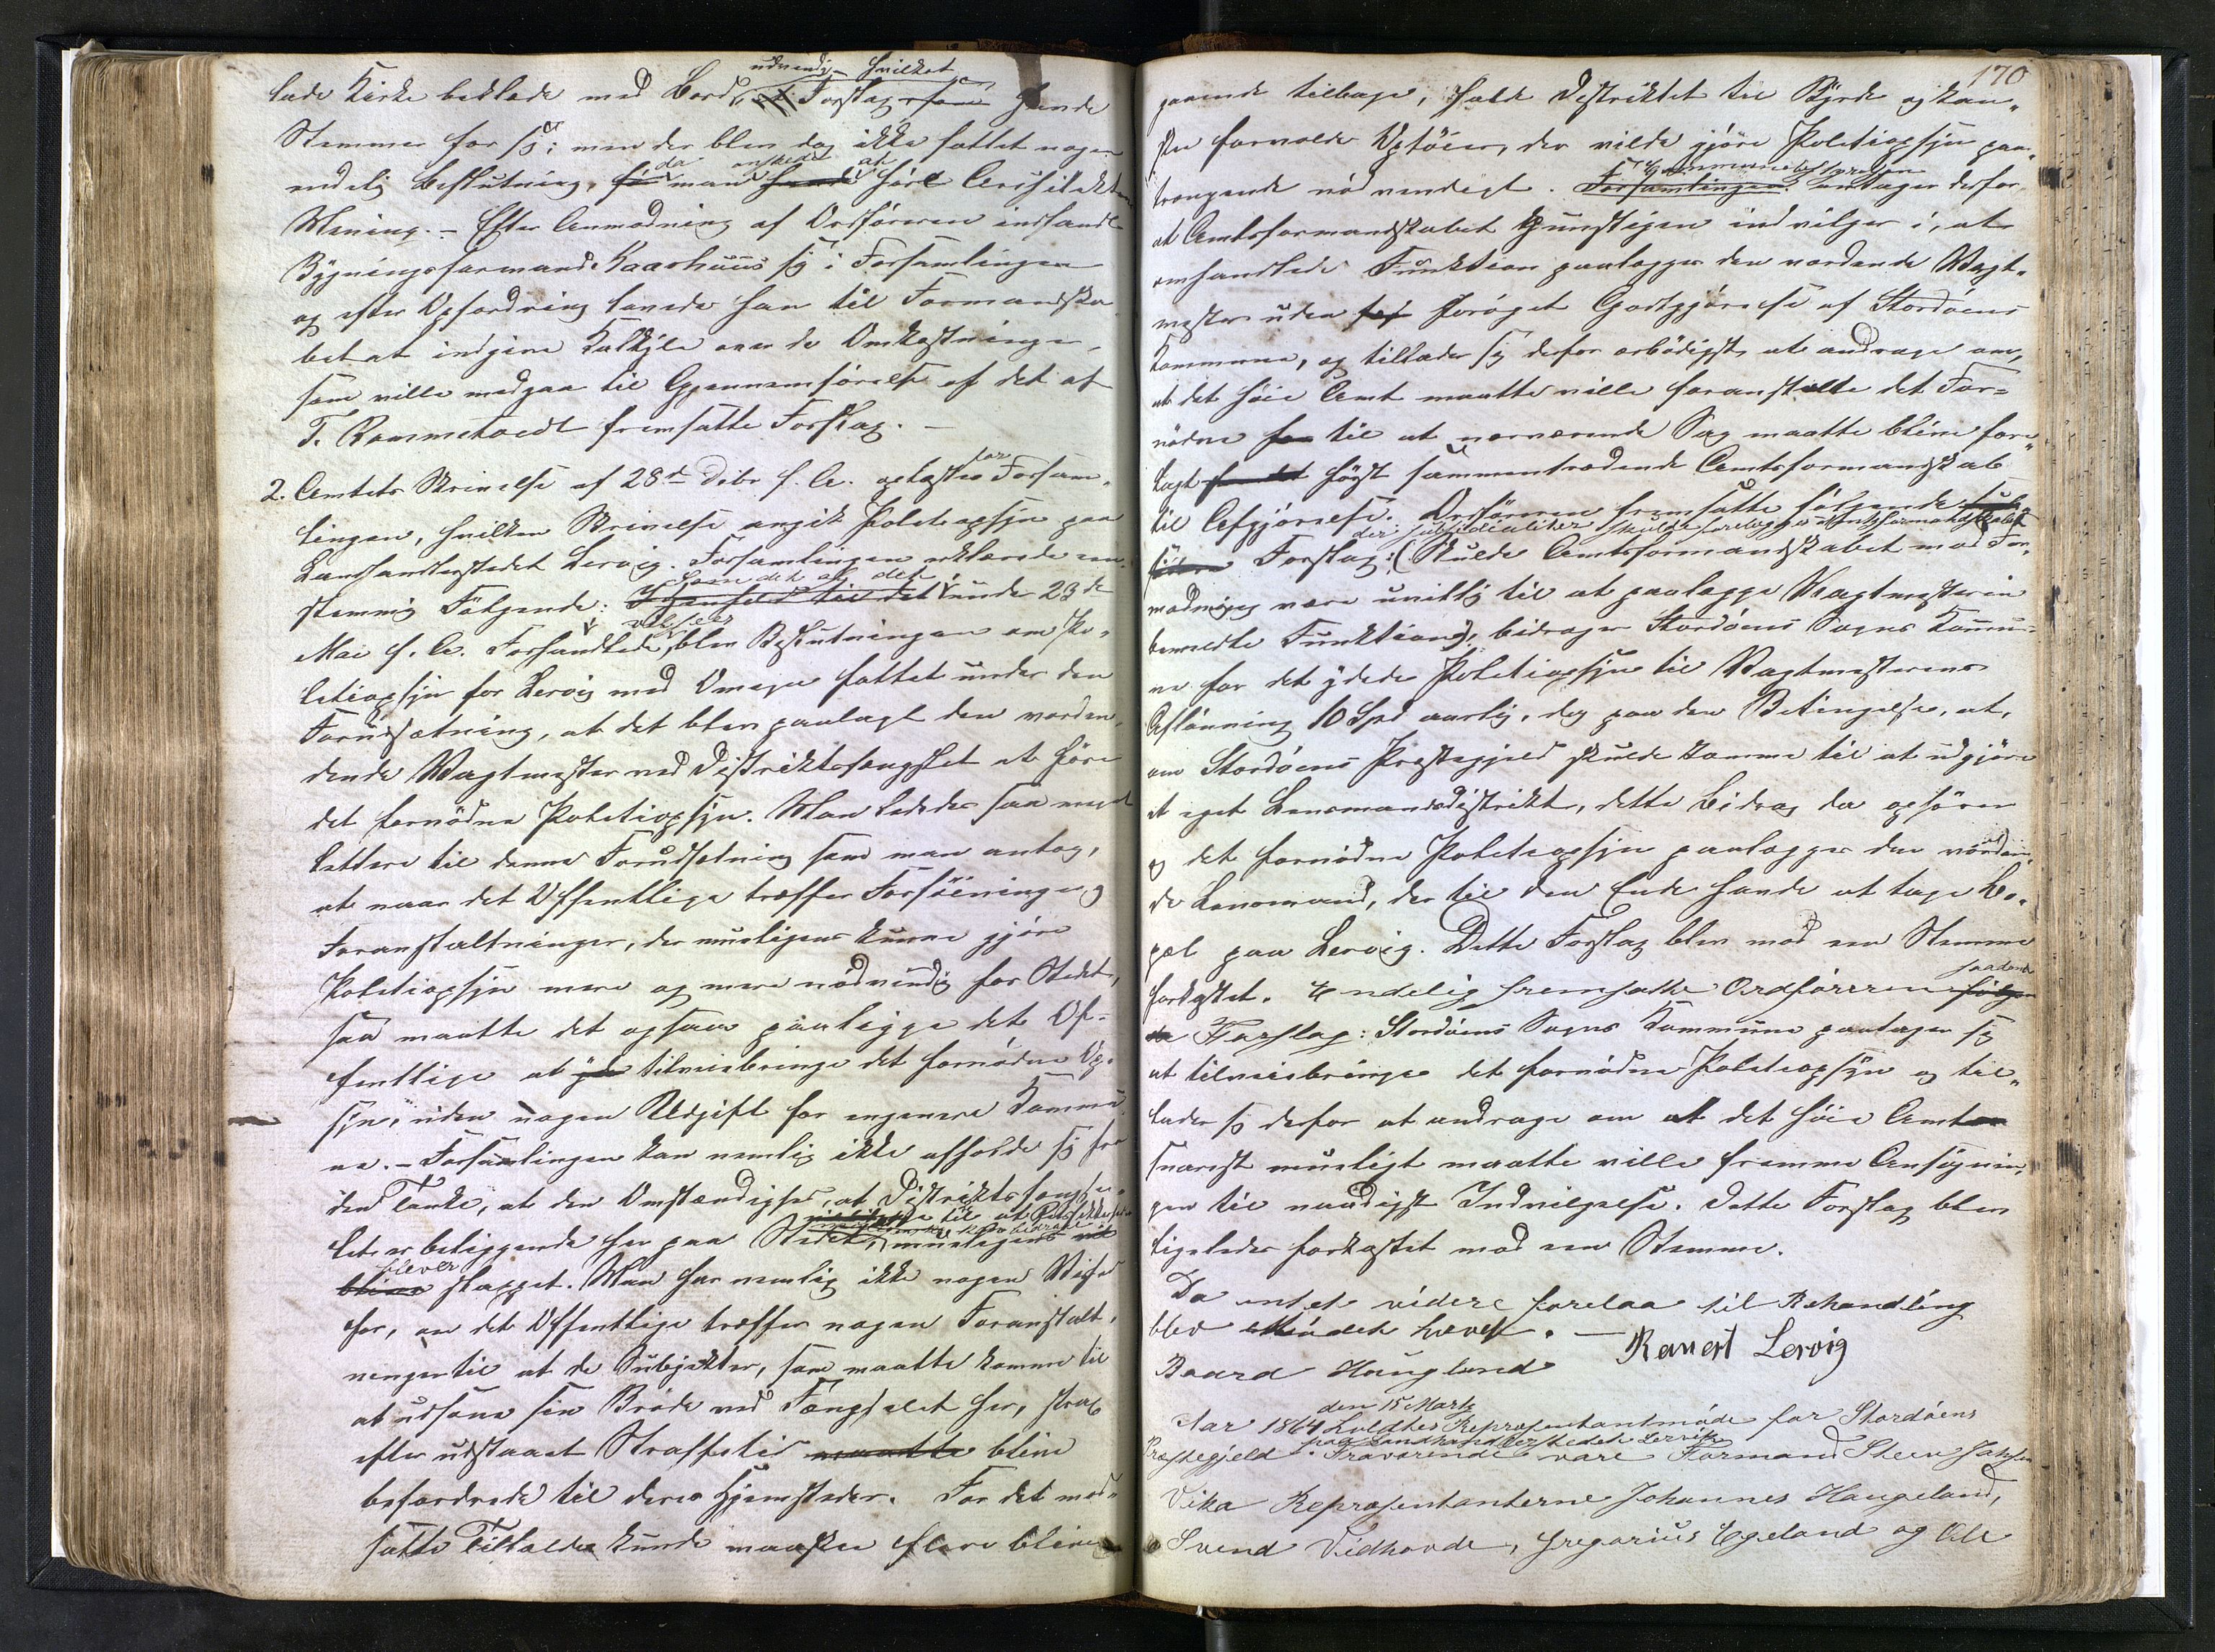 lade Kirke beklæde med Bord, udvendig hvilket Forslag som havde
Stemmer for sig; men der blev dog ikke fattet nogen
endelig Beslutning, da man önskede at höre Architektens
Mening. – Efter Anmodning af Ordföreren indfandt
Bygningsformand Kaarhuus sig i Forsamlingen
og efter Opfordring lovede han til Formandska-
bet at indgive Kalkyle over de Omkostninger,
som ville medgaa til Gjennemförelse af det af
T. Rommetvedt fremsatte Forslag. –
2. Amtets Skrivelse af 28de Debr f. A. oplæstes for Forsam-
lingen, hvilken Skrivelse angik Politiopsyn paa
Landhandlerstedet Lervig. Forsamlingen erklærede een-
stemmig Fölgende: Som det af det under 23de
Mai f. A. Forhandlede vil sees, blev Beslutningen om Po-
litiopsyn for Lervig med Omegn fattet under den
Forudsætning, at det blev paalagt den vorden-
dende Vagtmester ved Distriktsfængslet at före
det fornödne Politiopsyn. Man lededes saa meget
lettere til denne Forudsætning som man antog,
at naar det Offentlige træffer Forföininger og
Foranstaltninger, der muligens kunne gjöre
Politiopsyn mere og mere nödvendig for Stedet,
saa maatte det ogsaa paaligge det Of-
fentlige at yde tilveiebringe det fornödne Op-
syn, uden nogen Udgift for engere Kommu-
ne. – Forsamlingen kan nemlig ikke afholde sig fra
den Tanke, at den Omstændighed, at Distriktsfængs-
let er beliggende her paa Stedet, muligens vil
bliver blever skappet. Man har nemlig ikke nogen Vished
for, om det Offentlige træffer nogen Foranstalt-
ninger til at de Subjekter, som maatte komme til
at udsone sin Bröde ved Fængslet her, strax
efter udstaaet Straffetid maatte blive
befordrede til deres Hjemsteder. For det mod-
satte Tilfælde kunde maaske flere blive
170
gaaende tilbage, falde Distriktet til Byrde og kan-
ske forvolde Optöier, der vilde gjöre Politiopsyn paa-
trængende nödvendigt. Forsamlingen Kommunebestyrelsen antager derfor
at Amtsformandskabet gunstigen indvilger i, at
omhandlede Funktion paalægges den vordende Vagt-
mester uden foröget Godtgjörelse af Stordöens
Kommune, og tillader sig derfor ærbödigst at andrage om,
at det höie Amt maatte ville foranstalte det For-
nödne for til at nærværende Sag maatte blive fore-
lagt for det först sammentrædende Amtsformandskab
til Afgjörelse. Ordföreren fremsatte fölgende
der subsidialiter skulde forelægges Amtsformandskabet
Forslag: (Skulde Amtsformandskabet mod For-
modning være uvillig til at paalægge Vagtmesteren
bemeldte Funktion), bidrager Stordöens Sogns Kommu-
ne for det ydede Politiopsyn til Vagtmesterens
Aflönning 10 Spd aarlig, dog paa den Betingelse, at,
om Stordöens Præstegjeld skulde komme til at udgjöre
et eget Lensmandsdistrikt, dette Bidrag da ophörer
og det fornödne Politiopsyn paalægges den vorden-
de Lensmand, der til den Ende havde at tage Bo-
pæl paa Lervig. Dette Forslag blev mod een Stemme
forkastet. Endelig fremsatte Ordföreren saadant
Forslag: Stordöens Sogns Kommune paatager sig
at tilveiebringe det fornödne Politiopsyn og til-
lader sig derfor at andrage om at det höie Amt
snarest muligt maatte ville fremme Ansögnin-
gen til naadigst Indvilgelse. Dette Forslag blev
ligeledes forkastet mod een Stemme.
Da intet videre forelaa til Behandling
blev Mödet hævet. –
Baard Haugland Ravert Lervig
Aar 1864 den 15 Marts holdtes Repræsentantmöde for Stordöens
Præstegjeld paa Landhandlerstedet Lervik. Fraværende vare Formand Steen Jakobsen
Vika Repræsentanterne Johannes Haugeland,
Svend Vidhovde, Gregorius Egeland og Ole